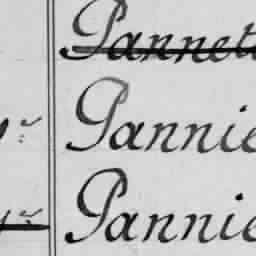 Pannet
yr Pannie
yr Pannie